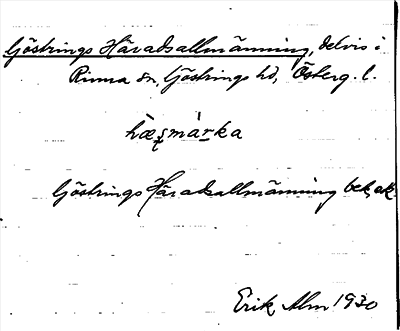 Göstrings Häradsallmänning, delvis i
Rinna sn, Göstrings hd, Österg. l.
hæṣmàrka
Göstrings Häradsallmänning bek, ek.
Erik Alm 1930